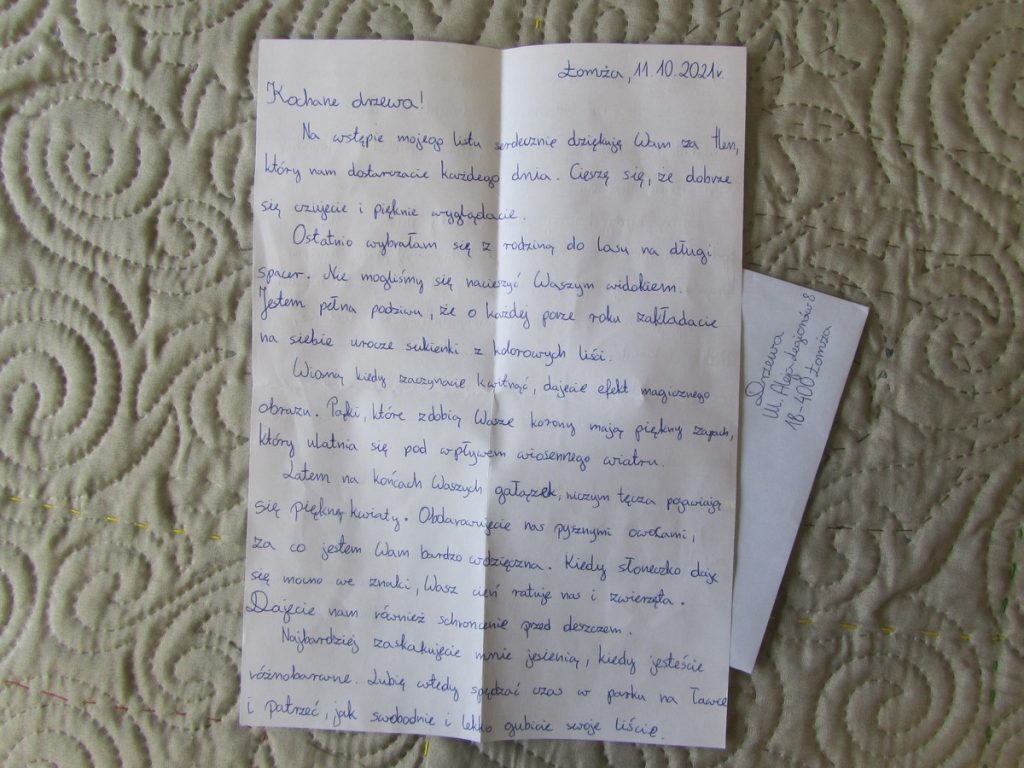 Łomża, 11.10.2021r.
Kochane drzewa!
Na wstępie mojego listu serdecznie dziękuję Wam za tlen,
który nam dostarczacie każdego dnia. Cieszę się, że dobrze
się czujecie i pięknie wyglądacie.
Ostatnio wybrałam się z rodziną do lasu na długi
spacer. Nie mogliśmy się nacieszyć Waszym widokiem.
Jestem pełna podziwu, że o każdej porze roku zakładacie
na siebie urocze sukienki z kolorowych liści.
Wiosną kiedy zaczynacie kwitnąć, dajecie efekt magicznego
obrazu. Pąki, które zdobią Wasze korony mają piękny zapach,
który ulatnia się pod wpływem wiosennego wiatru.
Latem na końcach Waszych gałązek, niczym tęcza pojawiają
się piękne kwiaty. Obdarowujecie nas pysznymi owocami,
za co jestem Wam bardzo wdzięczna. Kiedy słoneczko daje
się mocno we znaki, Wasz cień ratuje nas i zwierzęta.
Dajecie nam również schronienie przed deszczem.
Najbardziej zaskakujecie mnie jesienią, kiedy jesteście
różnobarwne. Lubię wtedy spędzać czas w parku na ławce
i patrzeć, jak swobodnie i lekko gubicie swoje liście.
Drzewa
Ul. Aleja Legionów 8
18-400 Łomża